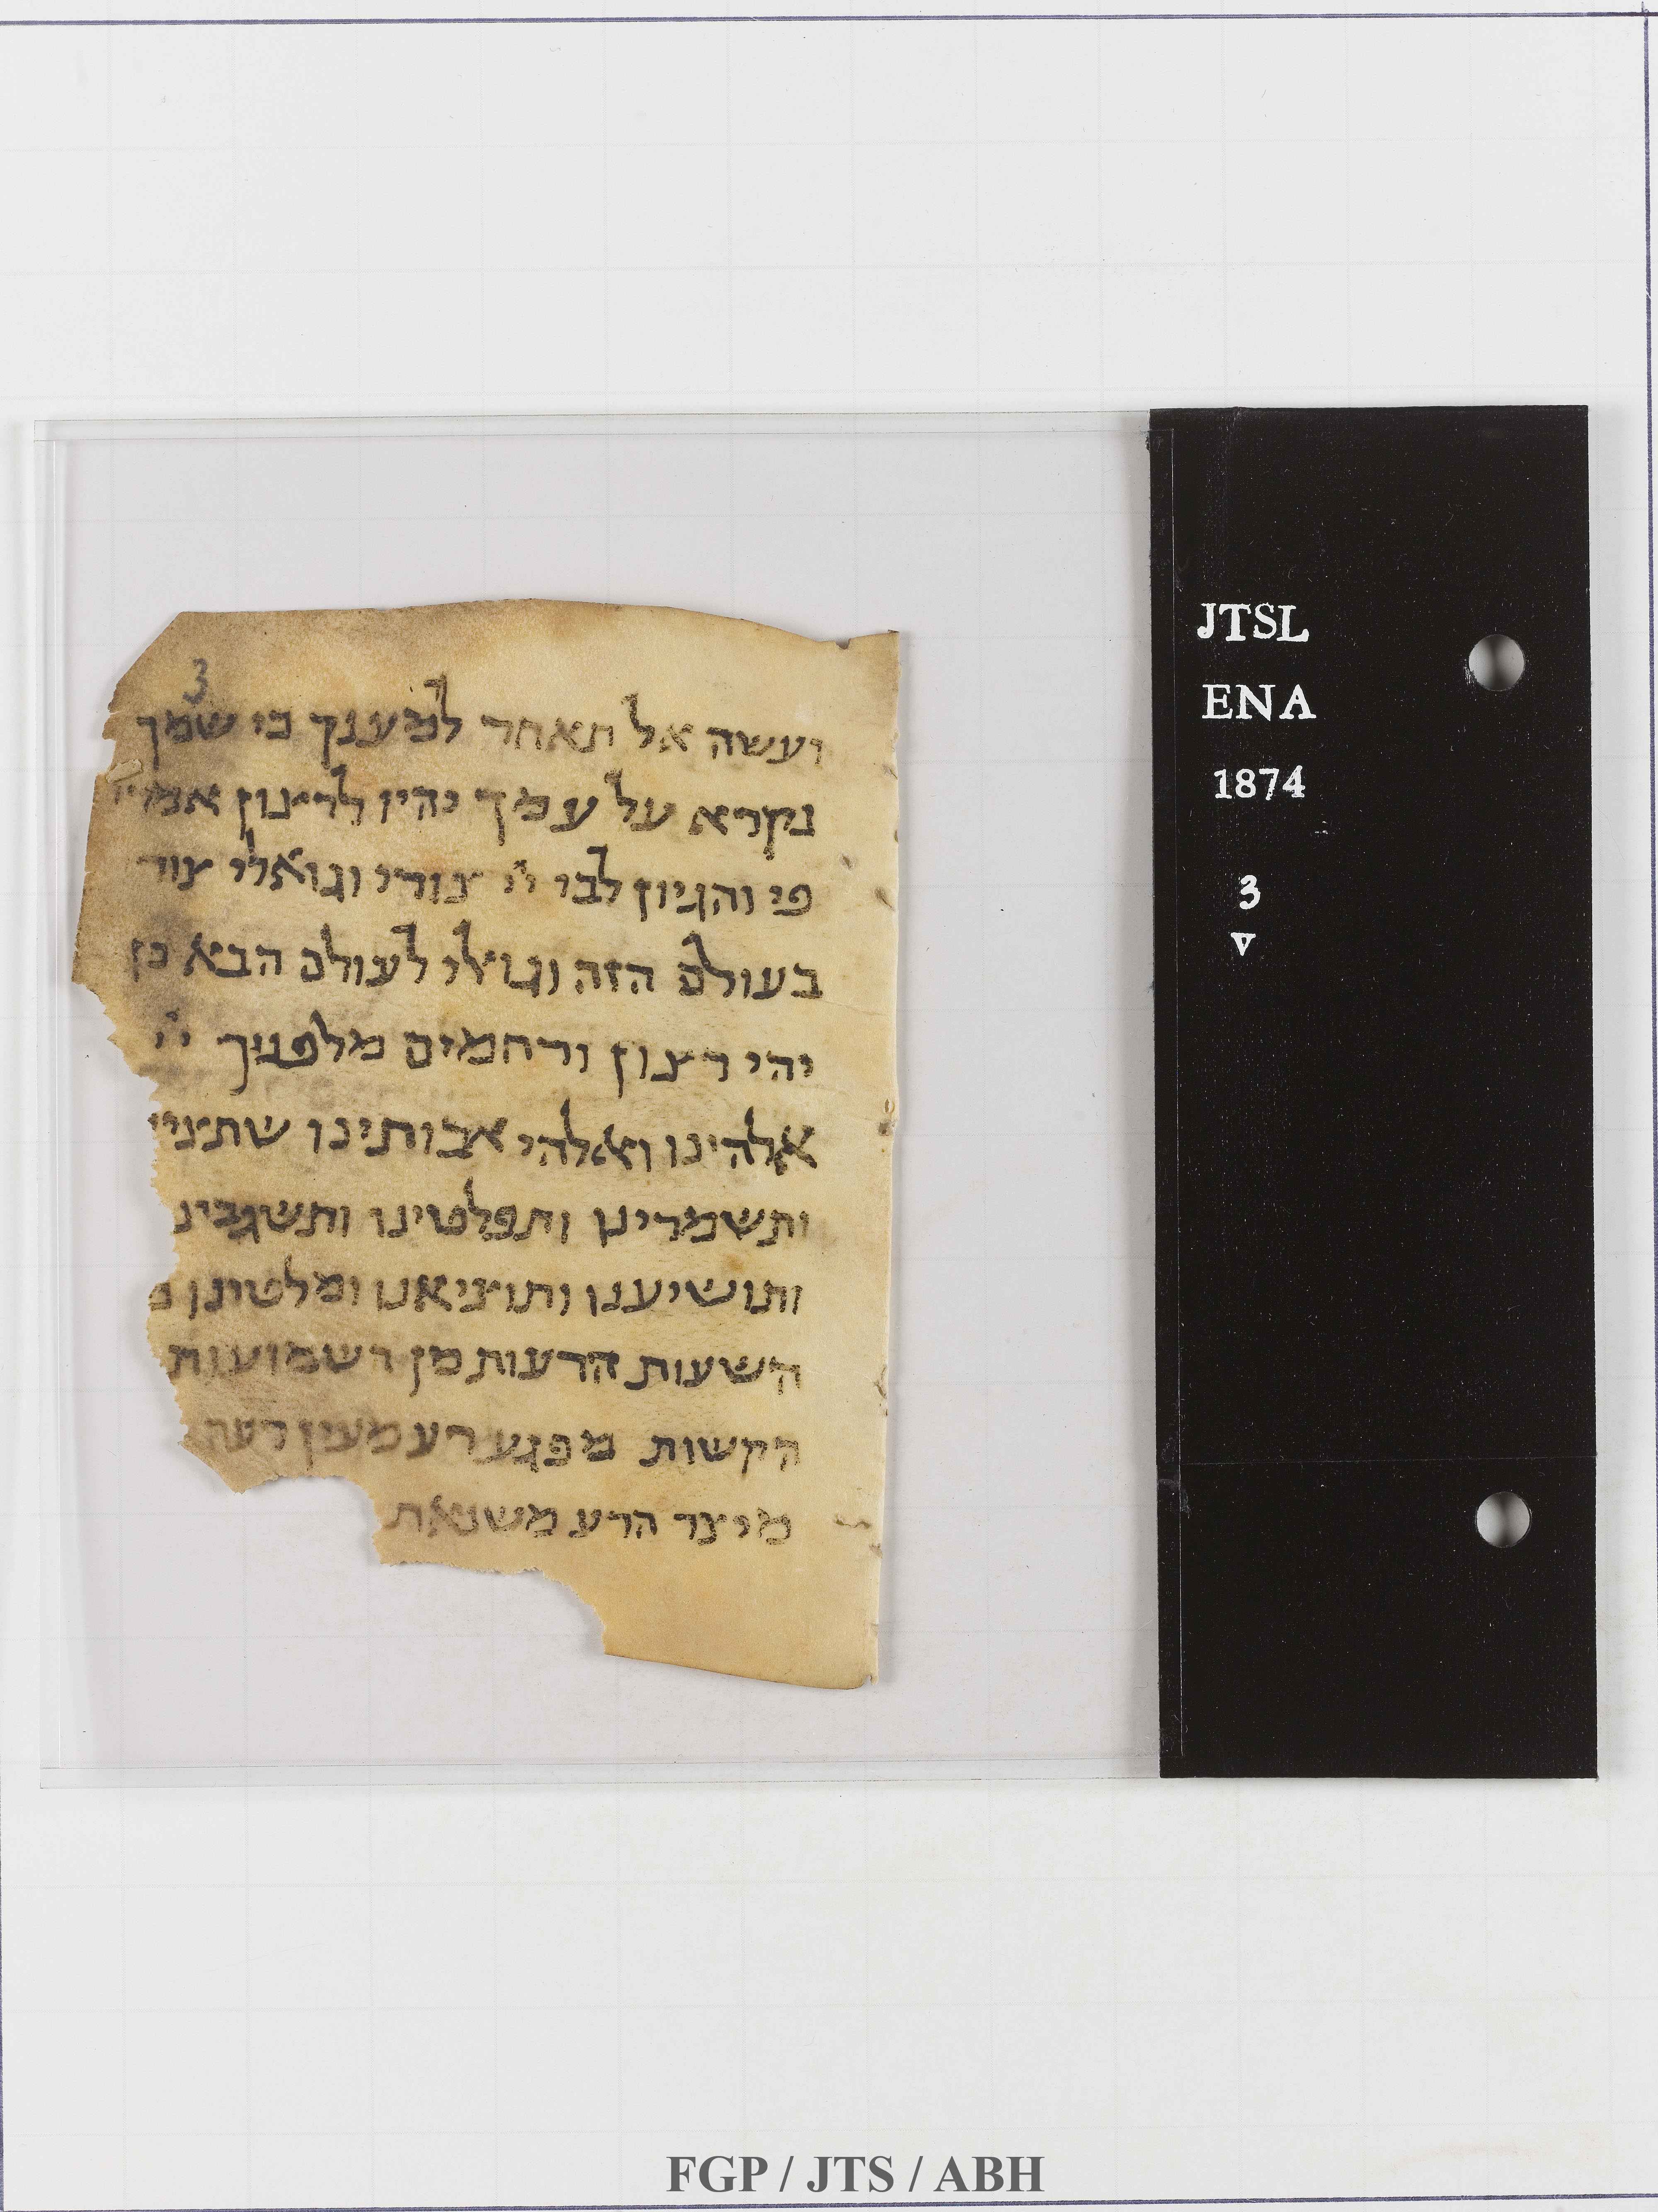 3
ועשה אל תאחר למענך כי שמך
נקרא על עמך יהיו לרצון אמרי
פי והגיון לבי יי צורי וגואלי צורי
בעולם הזה וגואלי לעולם הבא כן
יהי רצון ורחמים מלפניך יי
אלהינו ואלהי אבותינו שתצי
ותשמרינו ותפלטינו ותשגבינ
ותושיענו ותוציאנו ומלטינו מ
השעות הרעות מן השמועות
הקשות מפגע רע מעין רעה
מיצר הרע משנאת
JTSL
ENA
1874
3
v
FGP / JTS / ABH